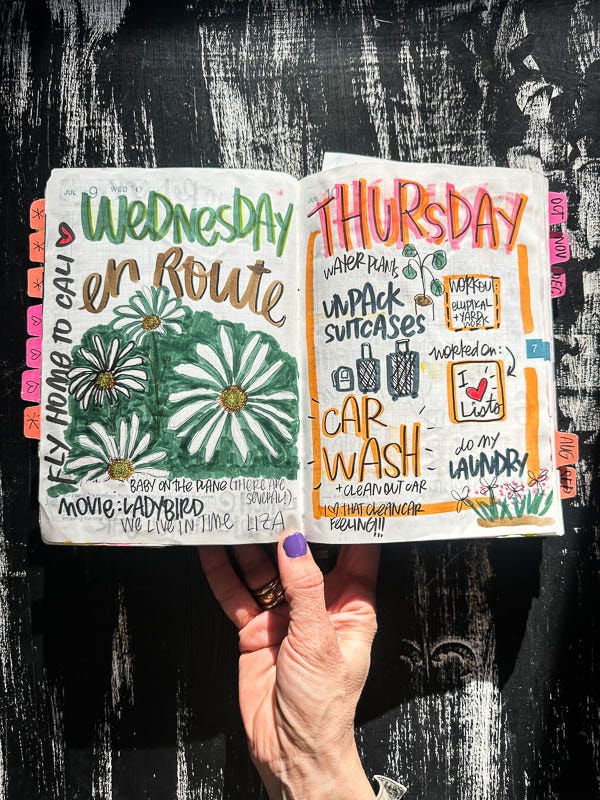 JUL 9 WED
WEDNESDAY
en ROUTE
FLY HOME TO CALI
BABY ON THE PLANE (THERE ARE
SEVERAL!)
MOVIE: LADYBIRD
WE LIVE IN TIME LIZA
JUL 10
THURSDAY
WATER PLANTS
UNPACK
SUITCASES
WORKOUT:
ELLIPTICAL
+ YARD
WORK
WORKED ON:
I
Lists
CAR
WASH
+ CLEAN OUT CAR
do my
LAUNDRY
I THAT CLEAN CAR
FEELING!!!
OCT
NOV
DEC
7
AUG
SEP